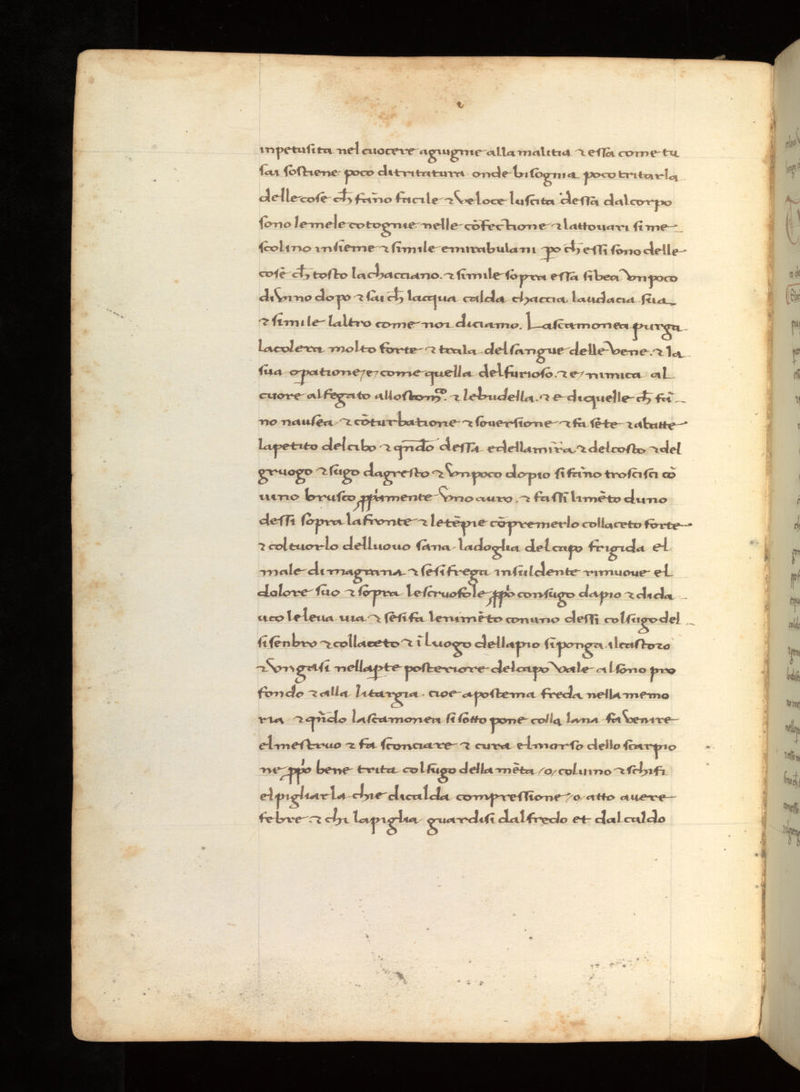 inpetusita nel cuocere agiugnie alla malitia ⁊ essa come tu
sai sostiene poco ditritatura onde bisognia poco tritarla
delle cose ch̄ fāno facile ⁊ veloce luscita dessa dal corpo
sono le mele cotognie nelle cōfectione ⁊ lattovari si me
scolino insieme ⁊ simile emirabulani po ch̄ essi sono delle
cose ch̄ tosto la chacciano. ⁊ simile sopra essa si bea vn poco
di vino dopo ⁊ sai ch̄ lacqua calda chaccia laudacia sua
⁊ simile laltro come noi diciamo. La scamonea purga
la colera molto forte ⁊ trala del sangue delle vene. ⁊ la
sua opatione /e/ come quella del furioso. ⁊ e/ nimica al
cuore al fegato allo stom̄co. ⁊ le budella. ⁊ e di quelle ch̄ fā
no nausea ⁊ cōturbatione ⁊ soversione ⁊ fa sete ⁊ abatte
lapetito del cibo ⁊ qn̄do dessa e della mirra ⁊ del costo ⁊ del
gruogo ⁊ sugo dagresto ⁊ vn poco dopio si fāno trosisci cō
vino brusco ꝓpiamente vno auro. ⁊ fassi limēto duno
dessi sopra la fronte ⁊ le tēpie cō premerlo collaceto forte
⁊ col tuorlo delluovo sana la doglia del capo frigida el
male di magrana ⁊ se si frega in sul dente rimuove el
dolore suo ⁊ sopra le scruofole ꝓpo con sugo dapio ⁊ dida
uco le leva via ⁊ se si fa lenimēto con uno dessi col sugo del
sisenbro ⁊ collaceto ⁊ ī luogo dellapio si ponga il castoro
⁊ vngasi nella pte posteriore del capo vale al sono pro
fondo ⁊ alla litargia. cioe apostema freda nella memo
ria ⁊ qn̄do la scamonea si sotto pone colla lana fa venire
el mestruo ⁊ fa sconciare ⁊ cura el morso dello scarpio
ne ꝓpo bene trita col sugo della mēta /o/ col vino ⁊ schifi
el pigliarla chi e di calda compressione /o/ atto avere
febre ⁊ chi la piglia guardisi dal fredo et dal caldo